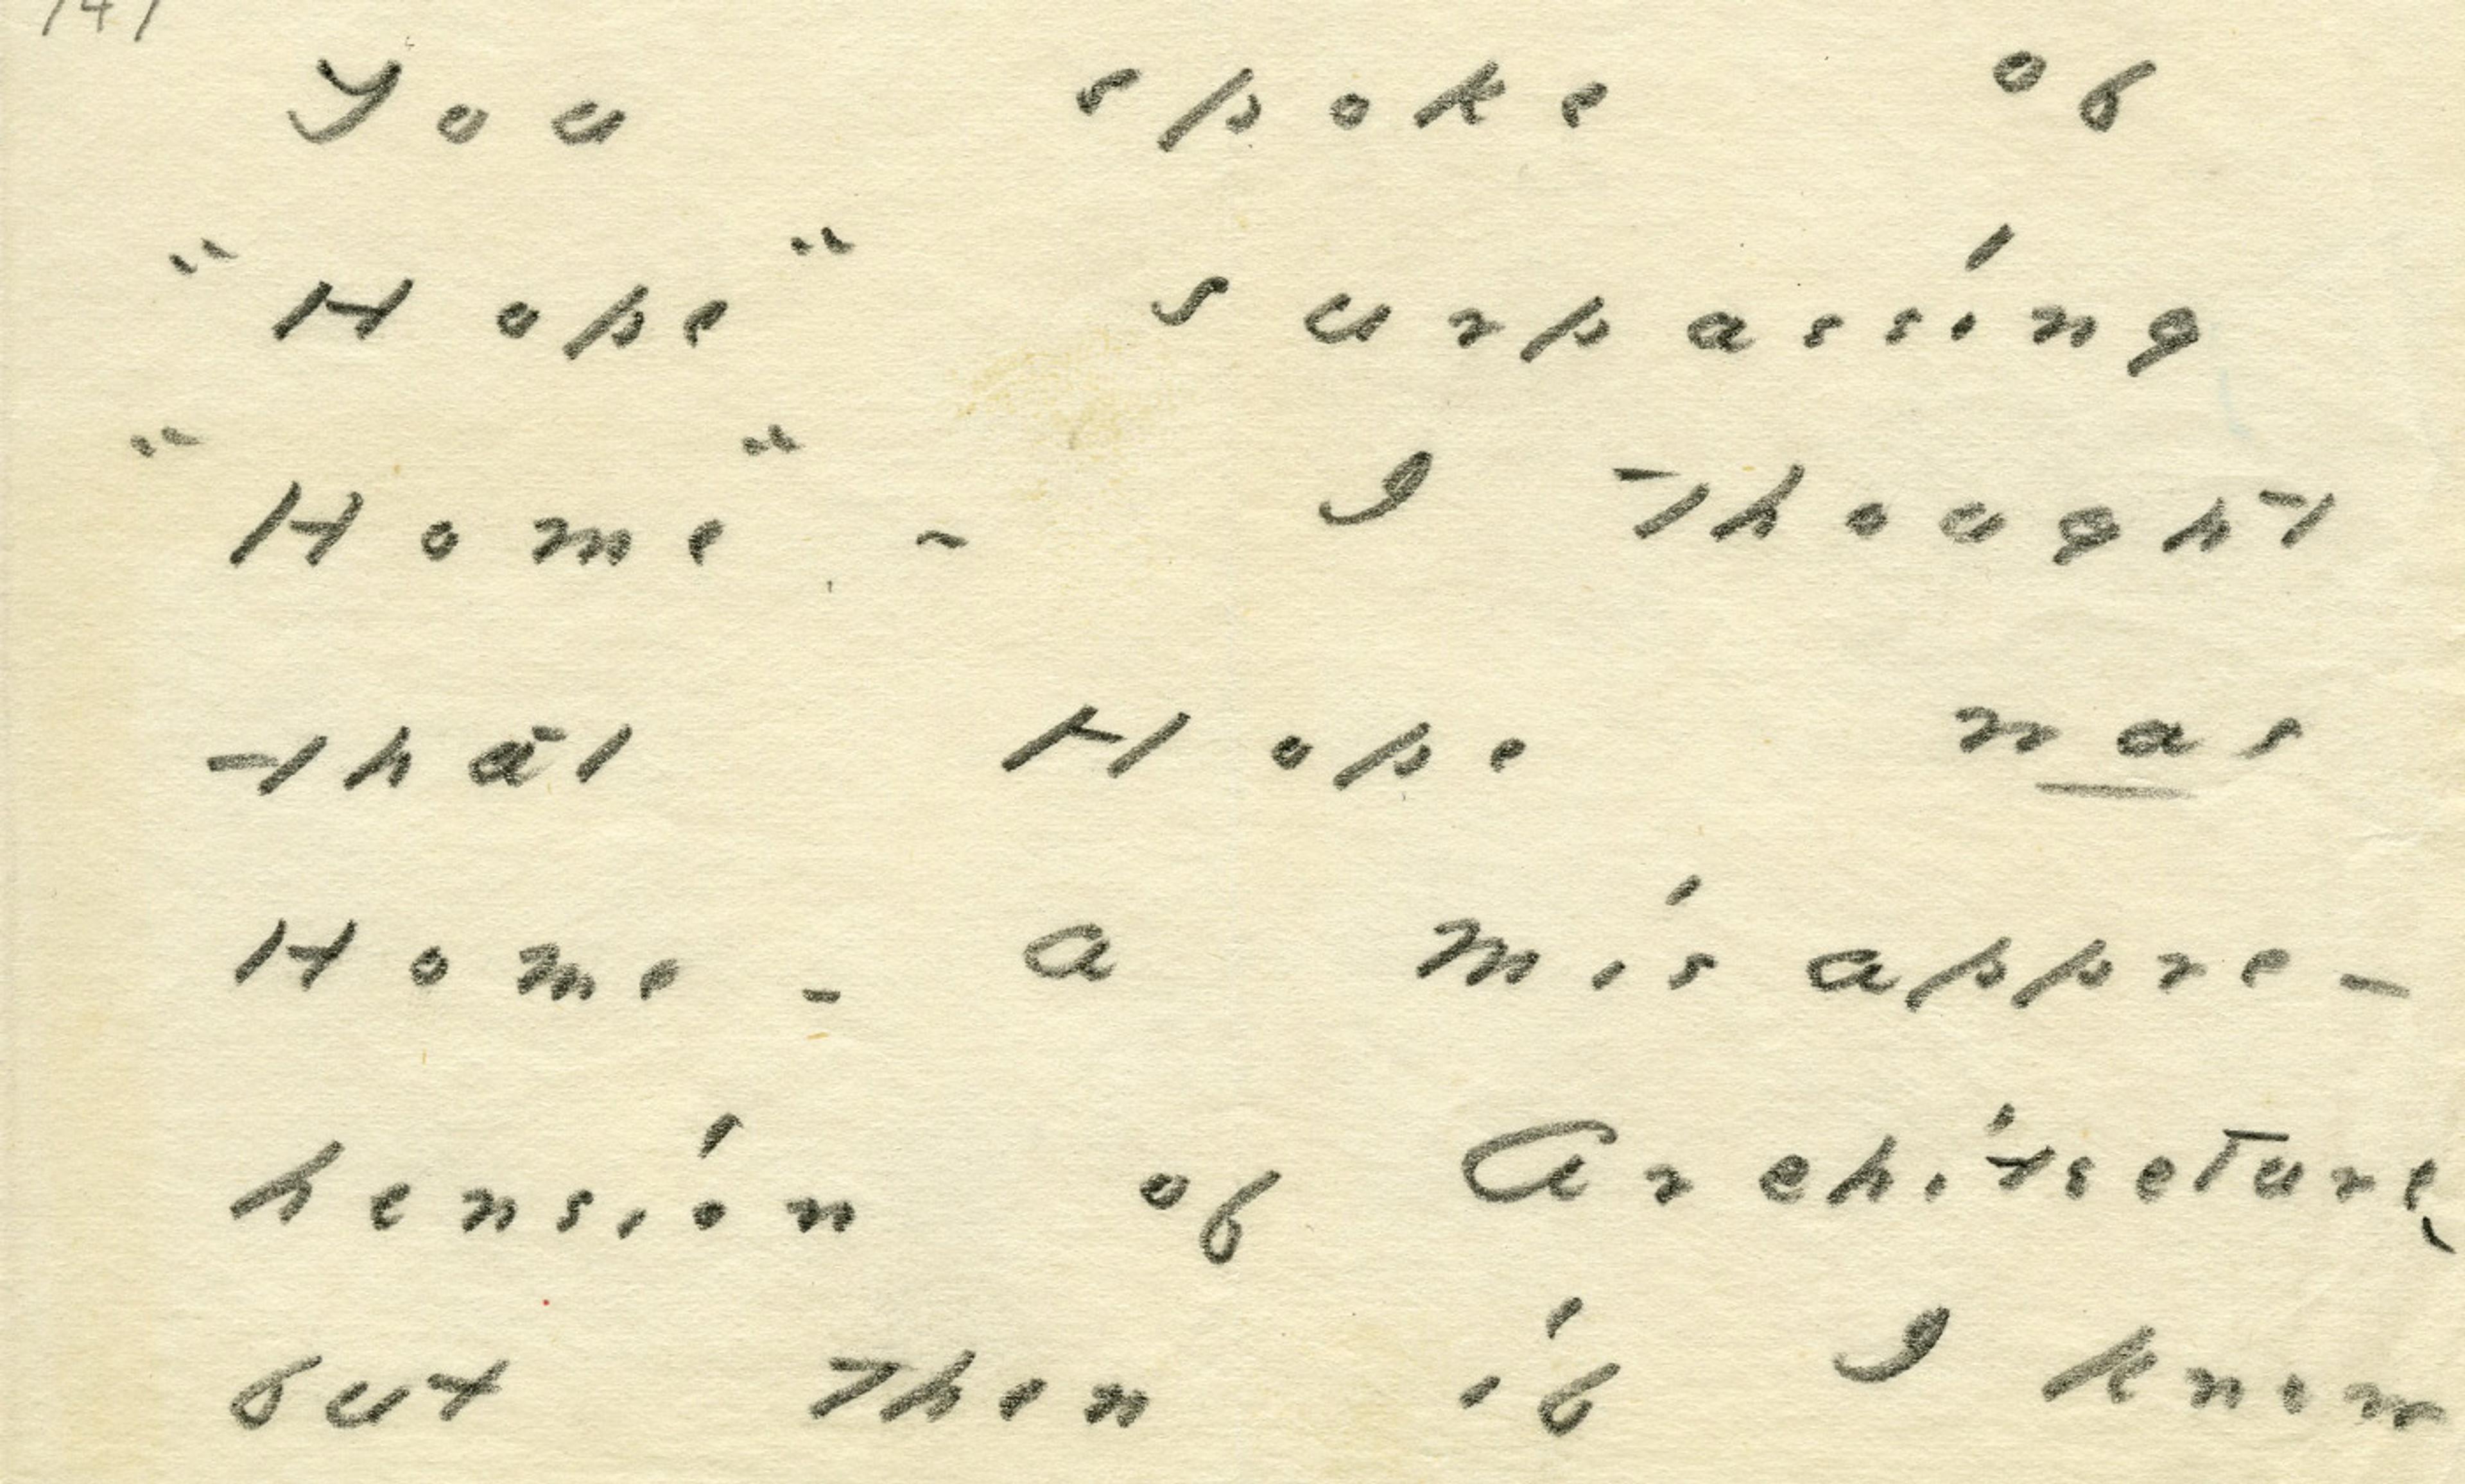 You spoke of
"Hope" surpassing
"Home" - I thought
that Hope was
Home - a misappre-
hension of Architecture,
but then if I knew